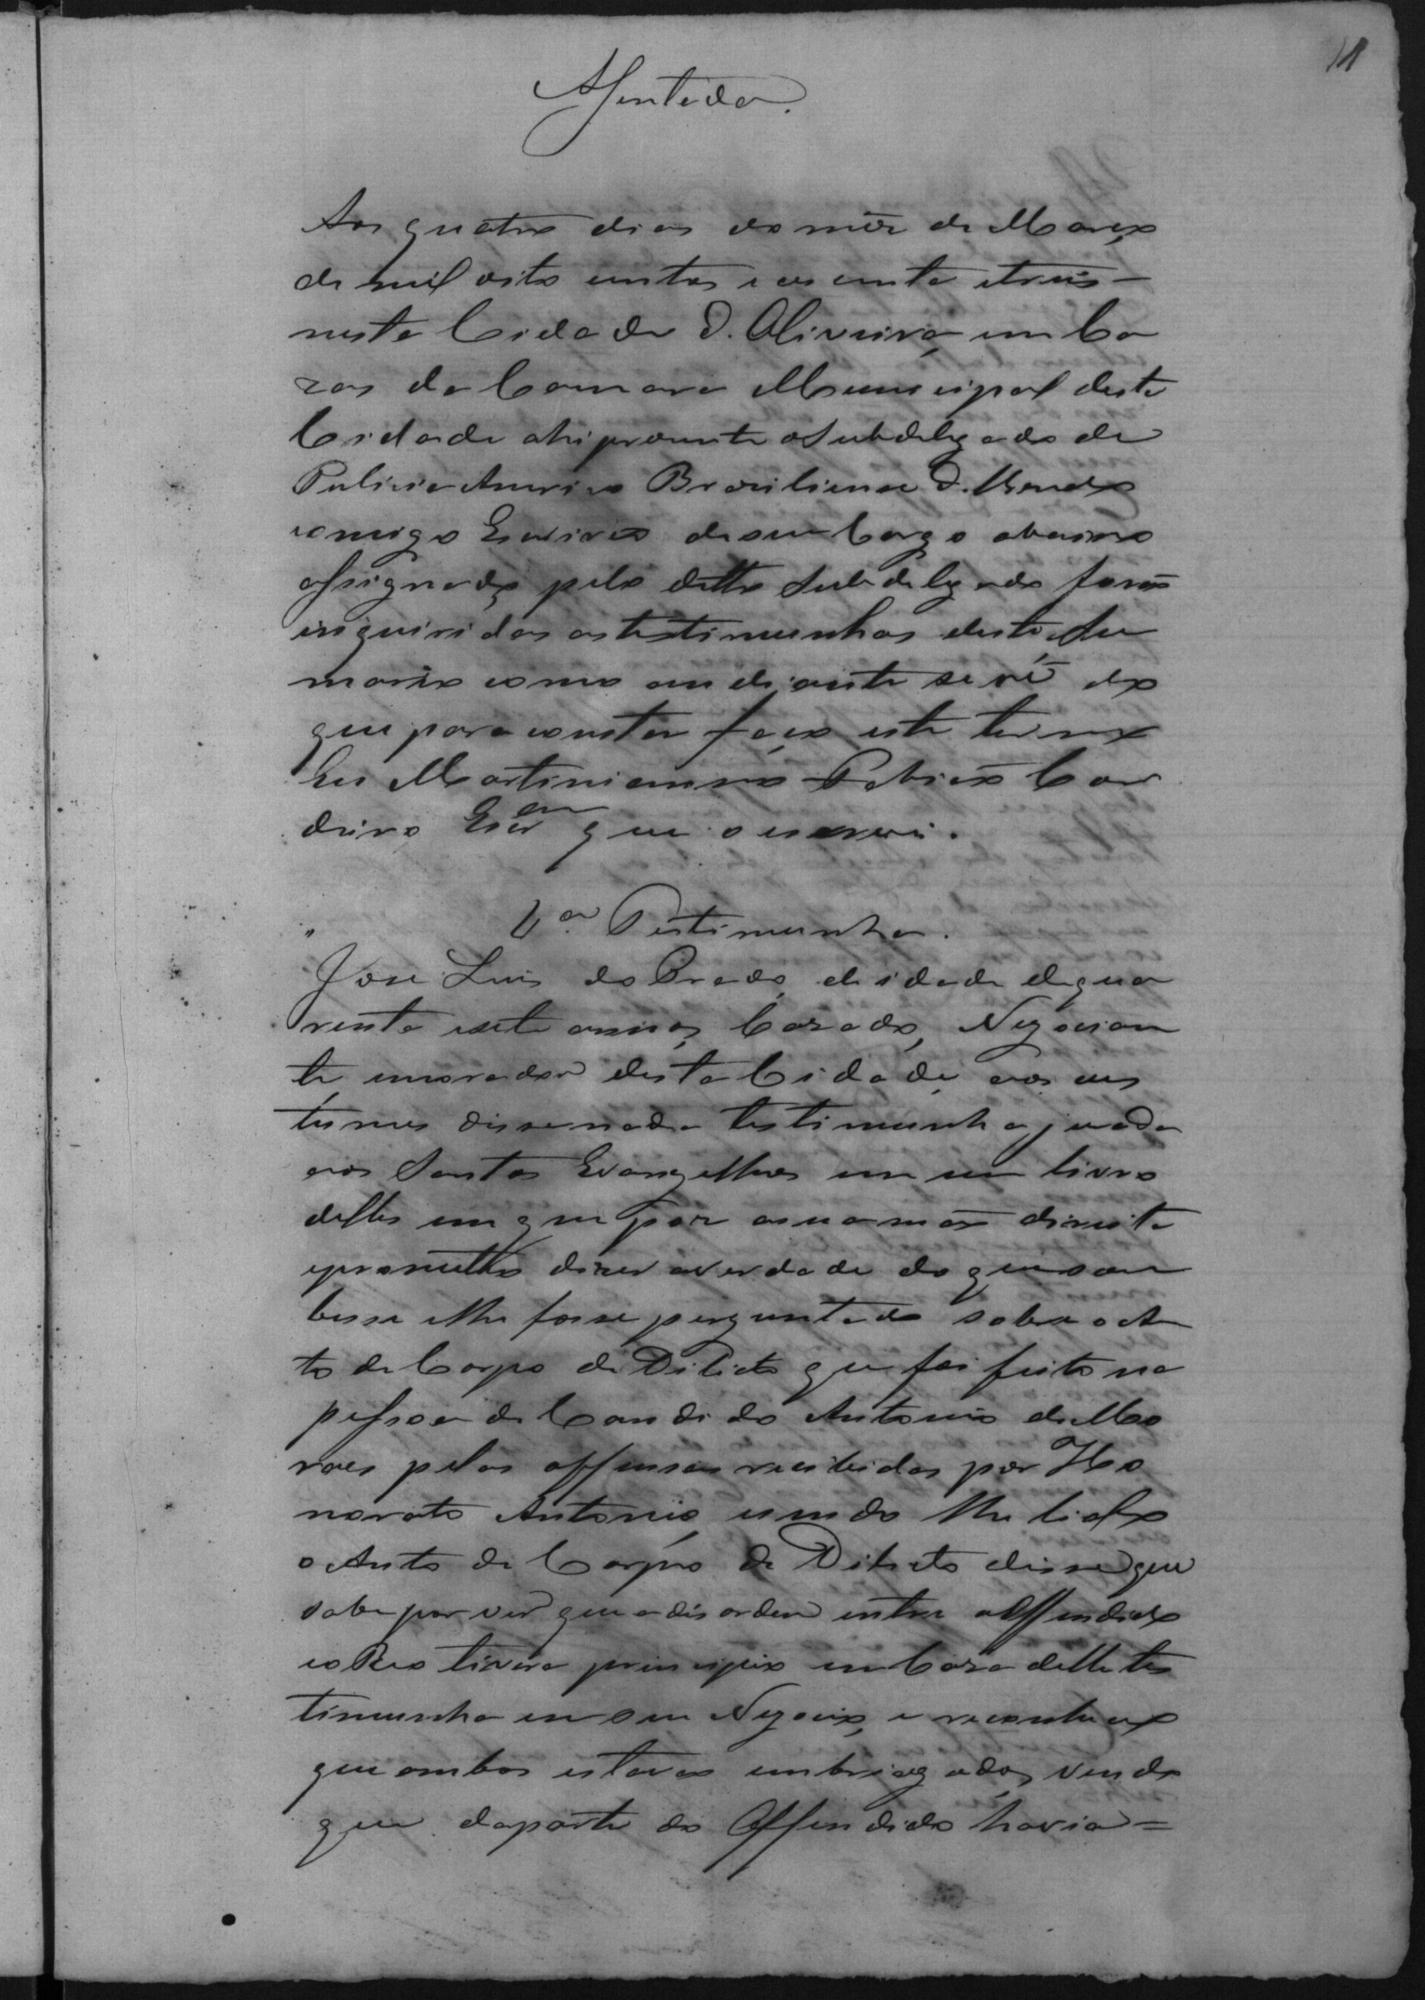 11
Assentada.
Aos quatro dias do mez de Março
de mil oito centos e secenta e treis
nesta Cidade d'Oliveira, em Ca
zas da Camara Municipal desta
Cidade ahi prezente o Subdelegado de
Pulicia Americo Braziliense d.
comigo Escrivão de seu Cargo abaixo
assignado, pelo ditto Subdelegado forão
inquiridas as testimunhas deste Su
mario como audiante se vê do
que para constar faço este termo
Eu Martinianno Cor
deiro Escr.am que o escrevi.
1.a Testimunha.
Jose Luis do Prado, de idade de qua
renta e sete annos, Cazado, Negocian
te, morador desta Cidade, aos cus
tumes disse nada testimunha jurada
aos Santos Evangelhos em um livro
delles em que pôz a sua mão direita
e prometteo dizer a verdade do que sou
besse e lhe fosse perguntado sobre o Au
to de Corpo de Dilicto que foi feito na
pessoa de Candido Antonio de Mo
raes pelas offensas recibidas por Ho
norato Antonio, sendo lhe lido
o Auto de Corpo de Dilicto disse que
sabe por ver que a disordem entre o Offendido
e o Reo tivera principio em Caza delle tes
timunha em seu Negocio, e reconheceo
que ambos estavão embriagados, vendo
que da parte do Offendido havia =